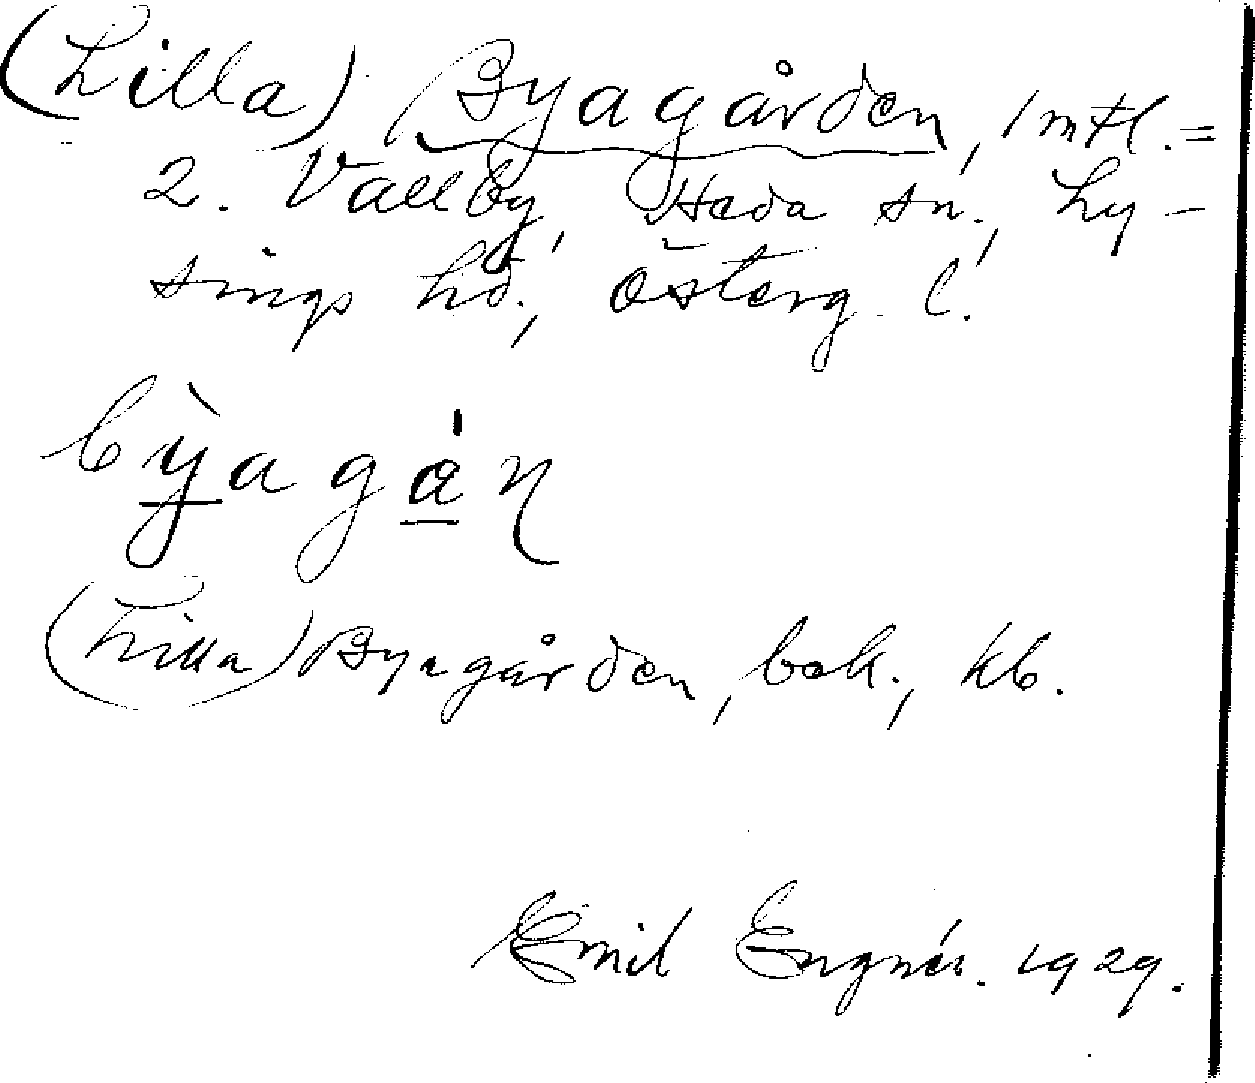 (Lilla) Byagården, 1 mtl. =
2. Vallby, Heda sn., Ly-
sings hd., Österg. l.
bỳagán
(Lilla) Byagården, bok., kb.
Emil Engnér. 1929.